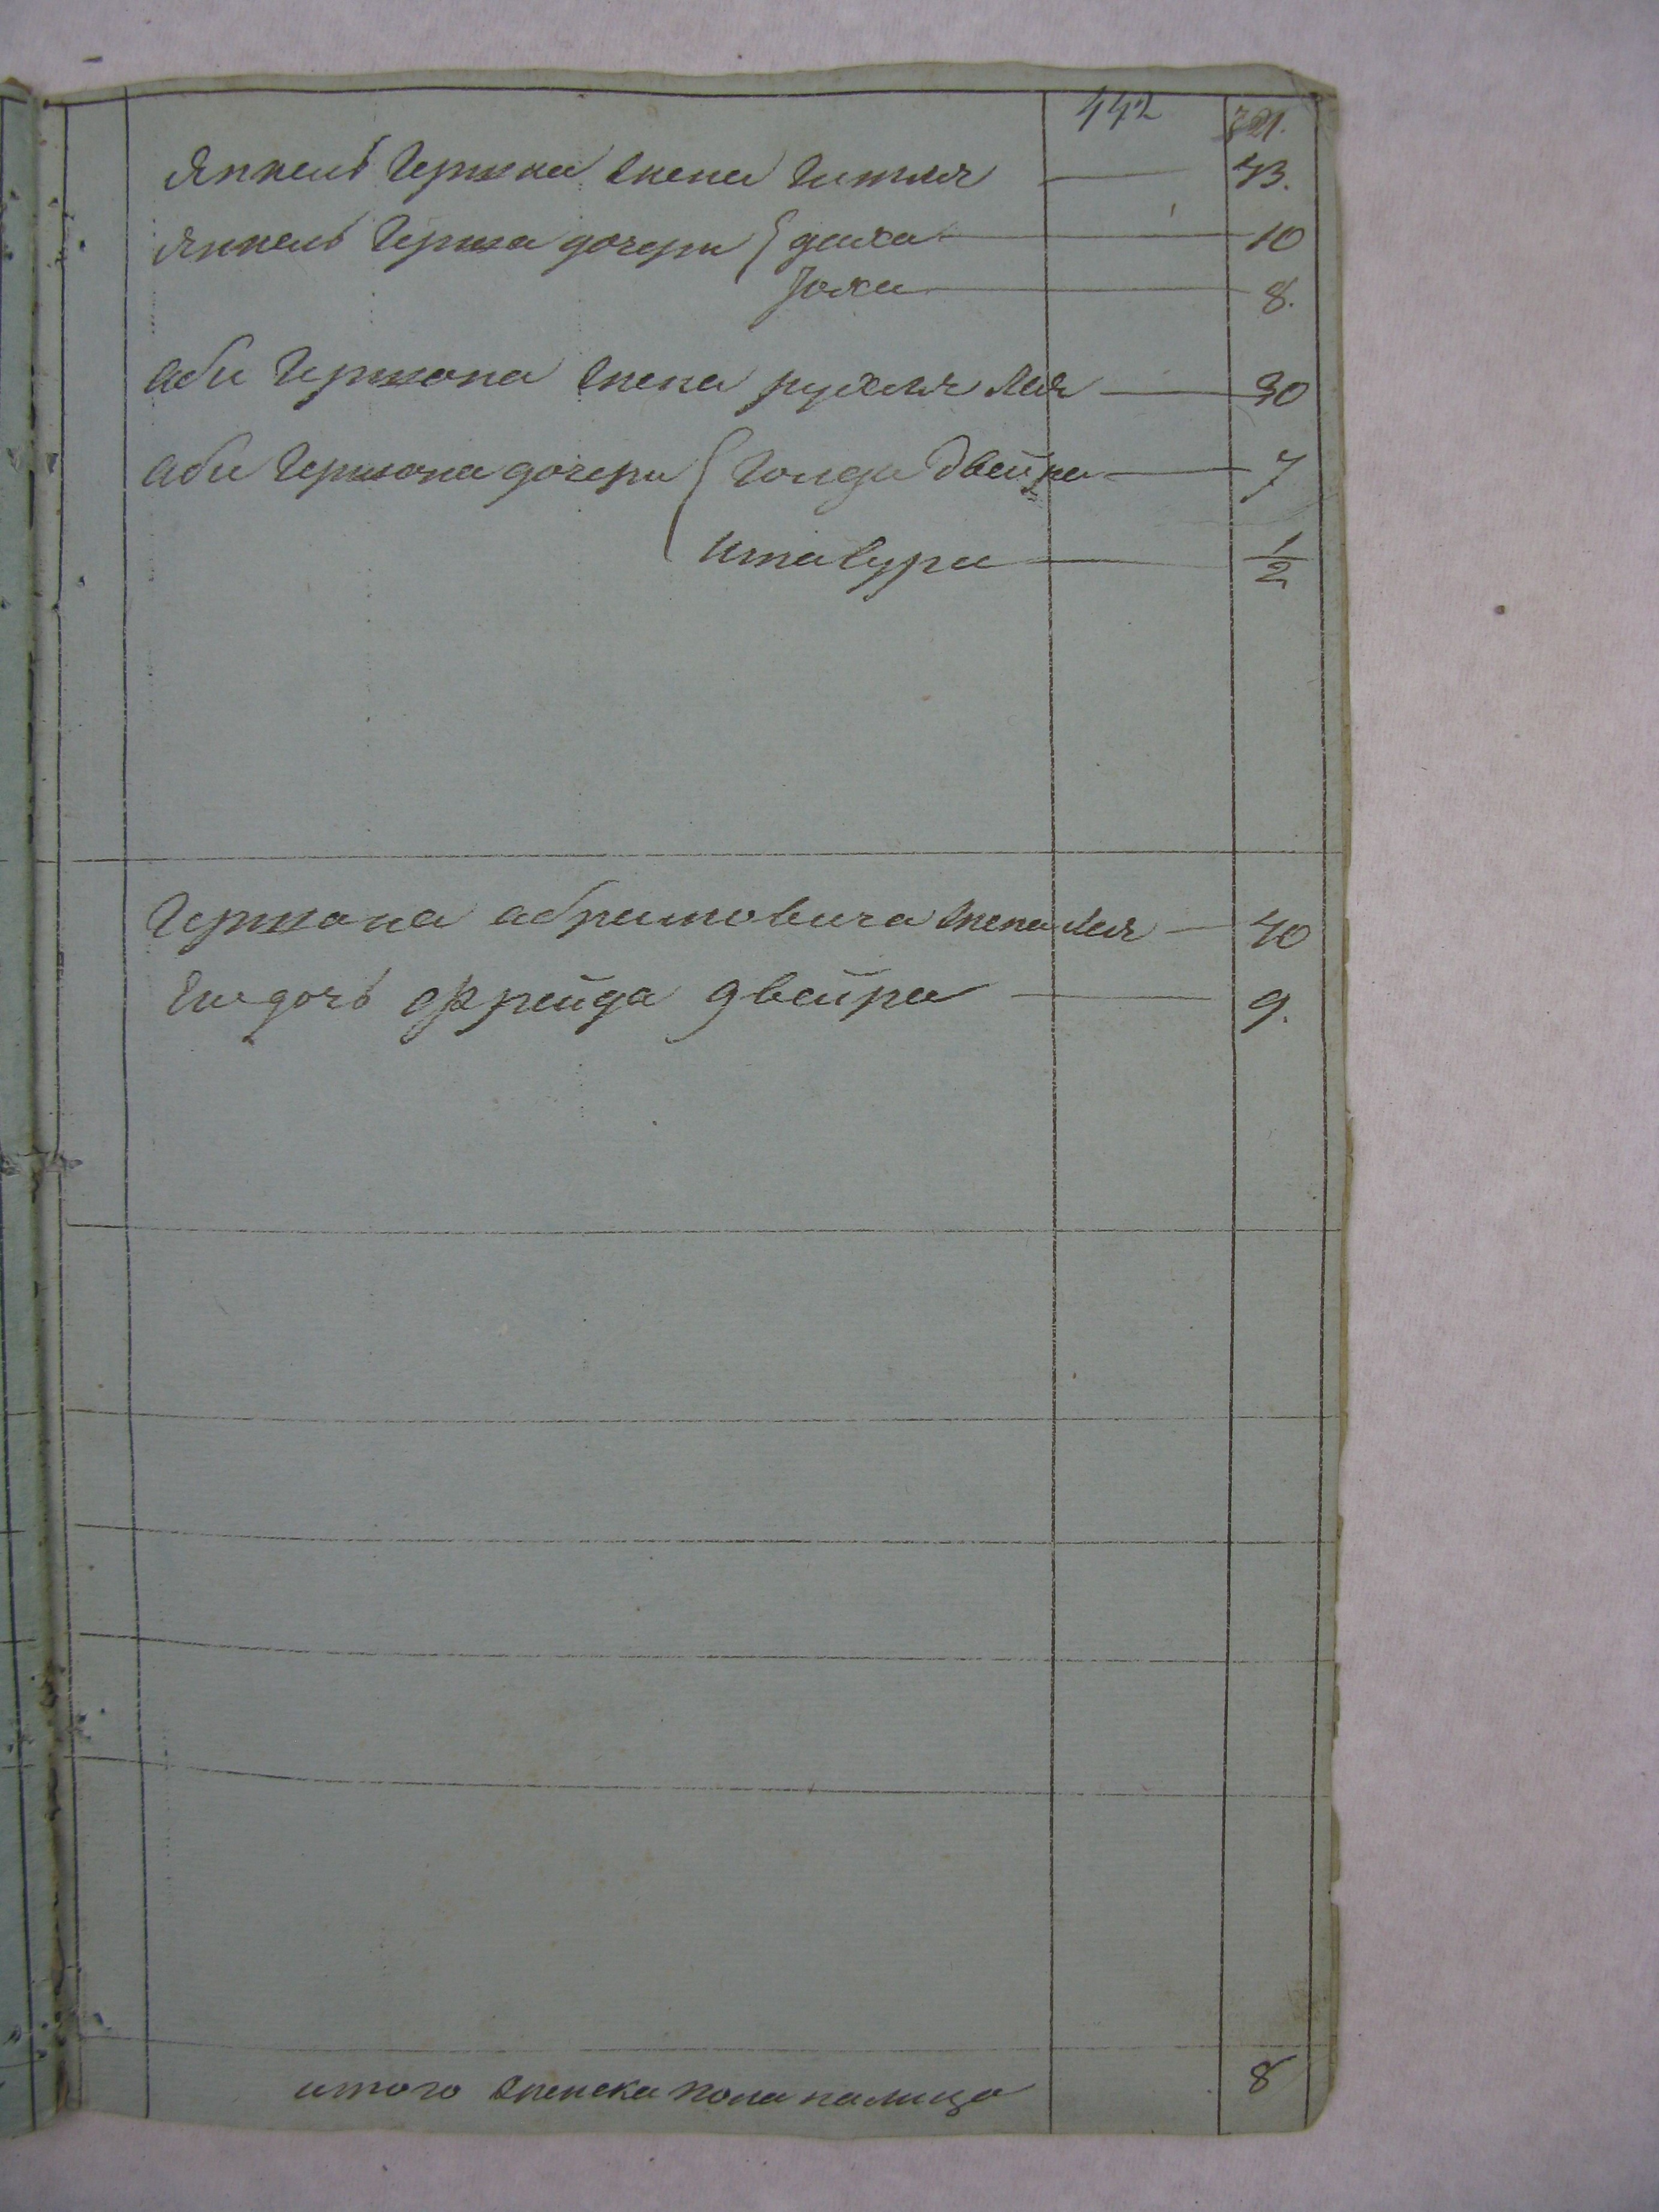 442
Янкель Гершка жена Гитля 43.
Янкель Герша дочери дихо 10
Рохи 8.
Аби Гершона жена рухля лея 30
Аби Гершона дочери Голда Двейра 7
Ита сура 1/2
Гершона абрамовича жена лея 40
Ево дочь Фрейда двейра 9.
итого женска пола налицо 8